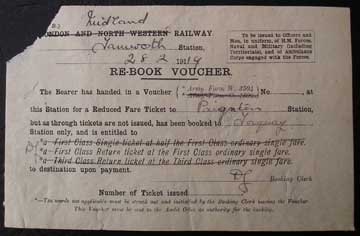 Midland
LONDON AND NORTH WESTERN RAILWAY
Tamworth Station,
28 2 1919
To be issued to Officers and
Men, in uniform, of H.M. Forces,
Naval and Military (including
Territorials), and of Ambulance
Corps engaged with the Forces.
RE-BOOK VOUCHER.
The Bearer has handed in a Voucher (*Army Form W. 3501) No. at
this Station for a Reduced Fare Ticket to Paignton
but as through tickets are not issued, has been booked to Torquay
Station only, and is entitled to
*a First Class Single ticket at half the First Class ordinary single fare.
*a First Class Return ticket at the First Class ordinary single fare.
*a Third Class Return ticket at the Third Class ordinary single fare.
to destination upon payment.
Booking Clerk
Number of Ticket issued
*—The words not applicable must be struck out and initialled by the Booking Clerk issuing the Voucher
This Voucher must be sent to the Audit Office as authority for the booking.